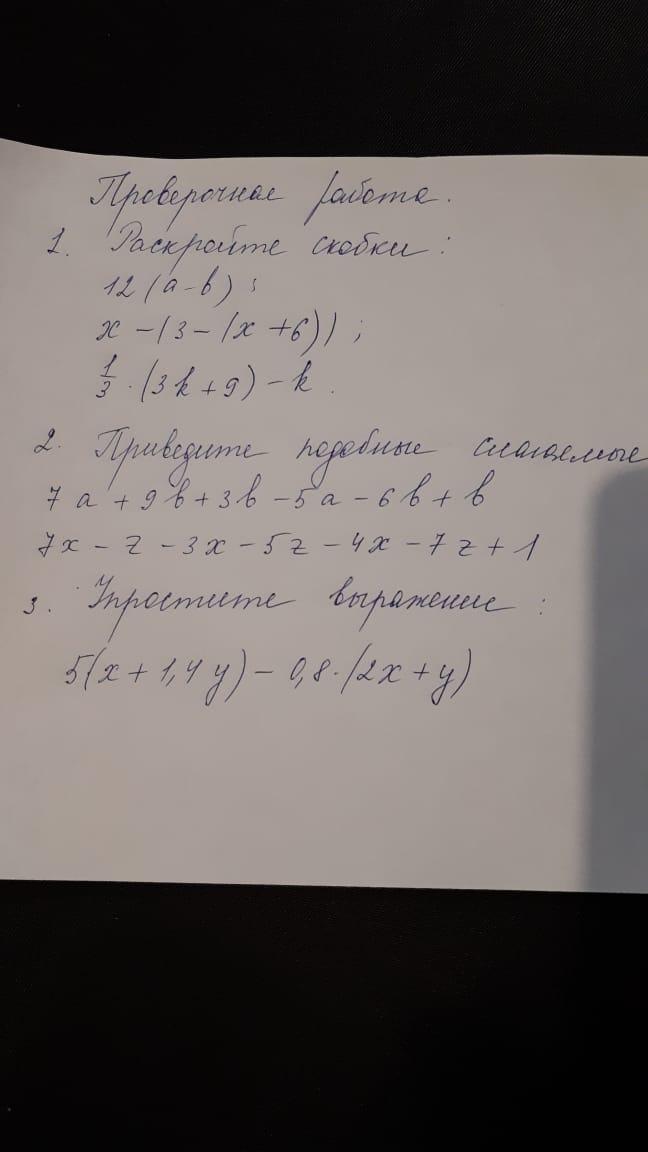 Проверочная работа.
1. Раскройте скобки:
12(a-b);
x-(3-(x+6));
1/3·(3k+9)-k.
2. Приведите подобные слагаемые
7a+9b+3b-5a-6b+b
7x-z-3x-5z-4x-7z+1
3. Упростите выражение:
5(x+1,4y)-0,8·(2x+y)